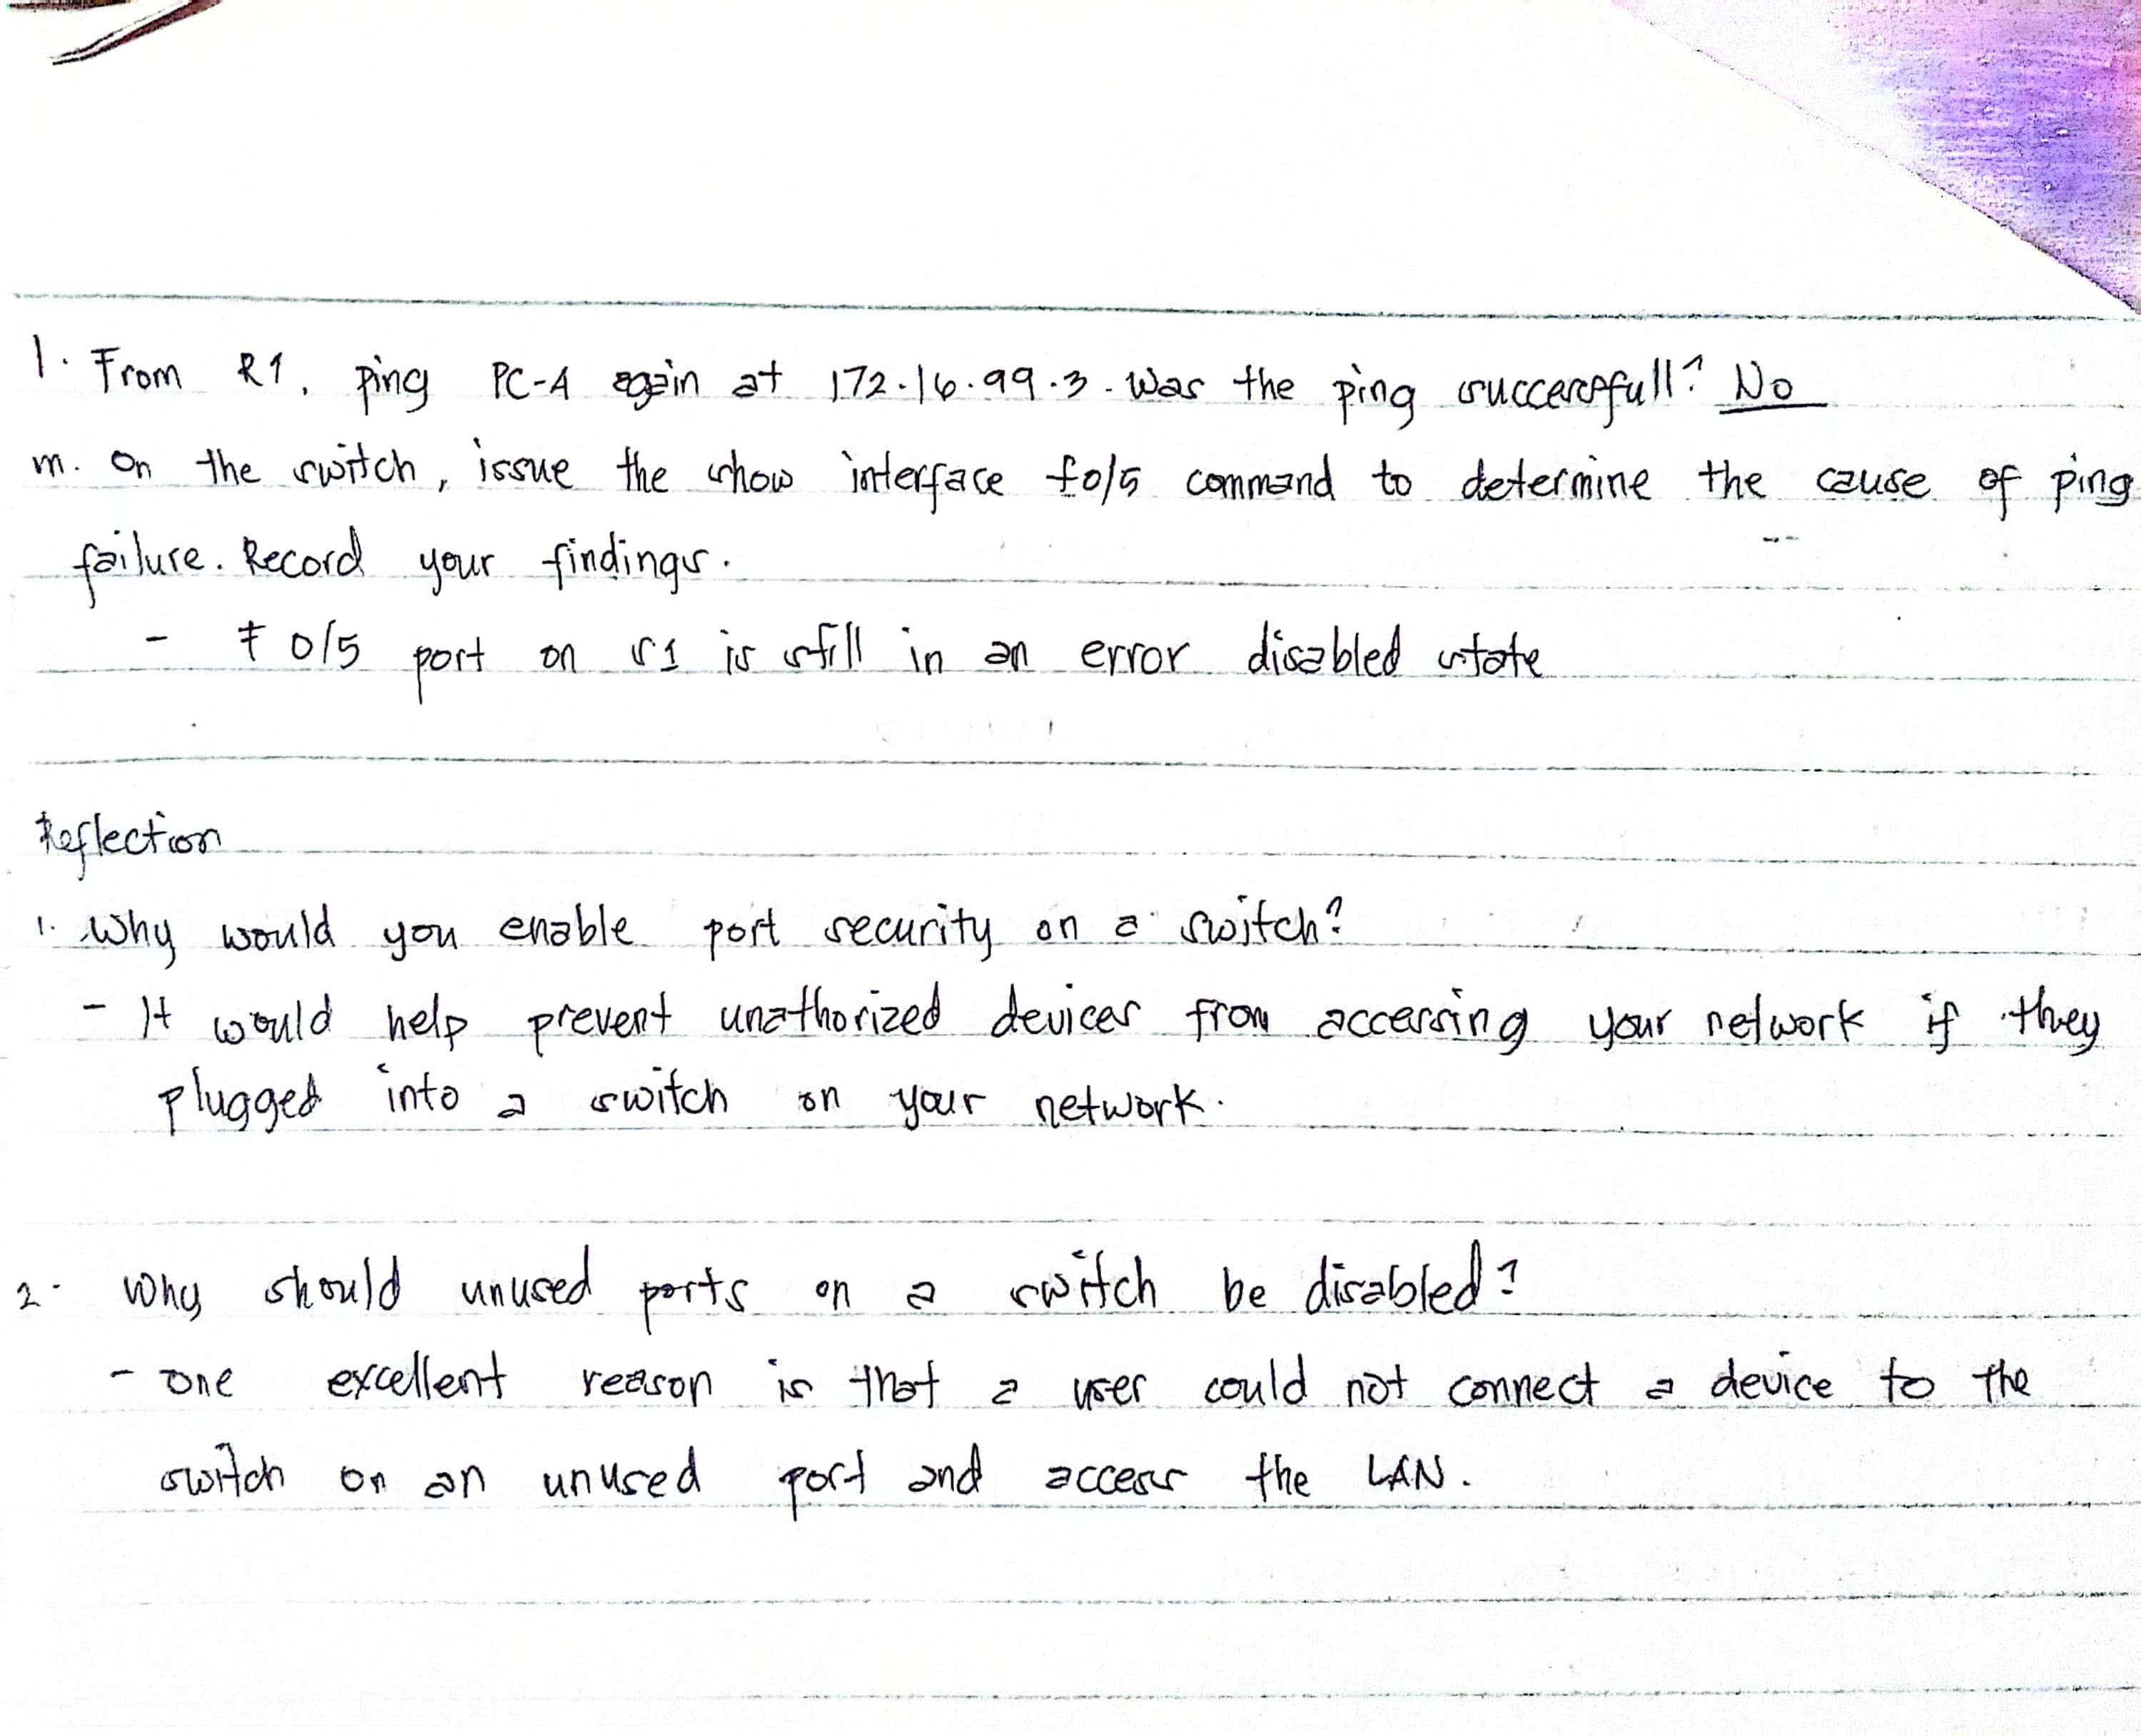 l. From R1, ping PC-A again at 172.16.99.3. Was the ping successfull? No
m. On the switch, issue the show interface f0/5 command to determine the cause of ping
failure. Record your findings.
- F 0/5 port on S1 is still in an error disabled state
Reflection
1. Why would you enable port security on a switch?
- It would help prevent unathorized devices from accessing your network if they
plugged into a switch on your network.
2. Why should unused ports on a switch be disabled?
- one excellent reason is that a user could not connect a device to the
switch on an unused port and access the LAN.